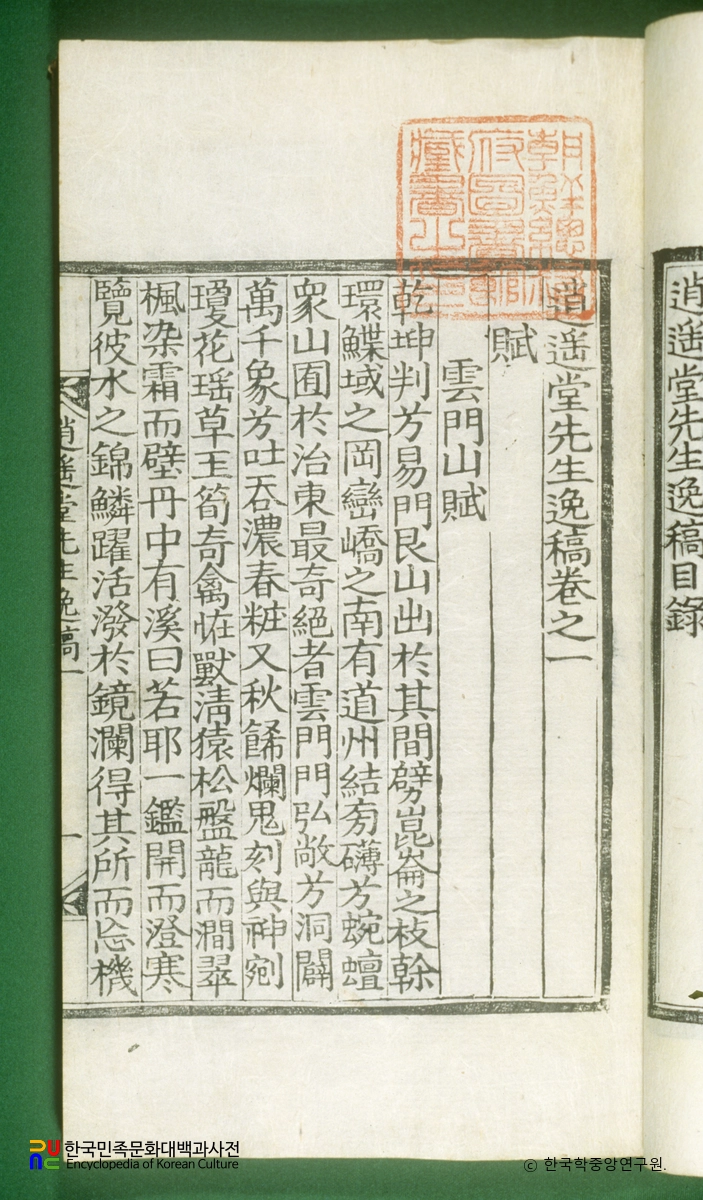 逍遥堂先生逸稿目錄
朝鮮總督府圖書館藏書之印
逍遥堂先生逸稿卷之一
賦
雲門山賦
乾坤判兮易門艮山出於其間劈崑崙之枝榦
環鰈域之岡巒嶠之南有道州結旁礴兮蜿蟺
衆山囿於治東最奇絕者雲門門弘敞兮洞闢
萬千象兮吐吞濃春粧又秋餙爛鬼刻與神剜
瓊花瑶草玉筍奇禽恠獸淸猿松盤龍而澗翠
楓染霜而壁丹中有溪曰若耶一鑑開而澄寒
覽彼水之錦鱗躍活潑於鏡瀾得其所而忘機
逍遥堂先生逸稿一
一
한국민족문화대백과사전
Encyclopedia of Korean Culture
© 한국학중앙연구원.